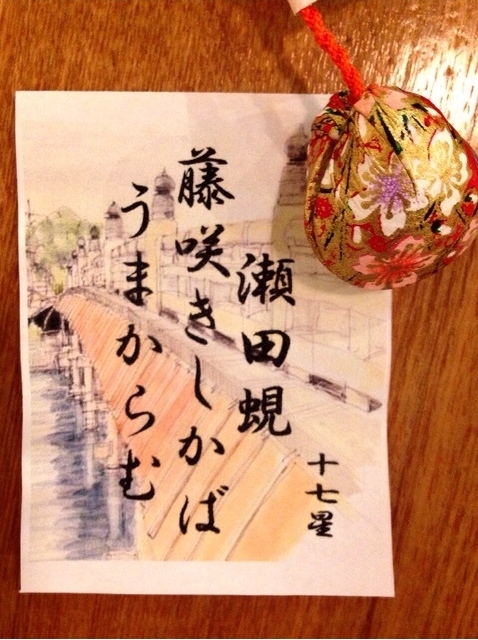 十七星
瀬田蜆
藤咲きしかば
うまからむ